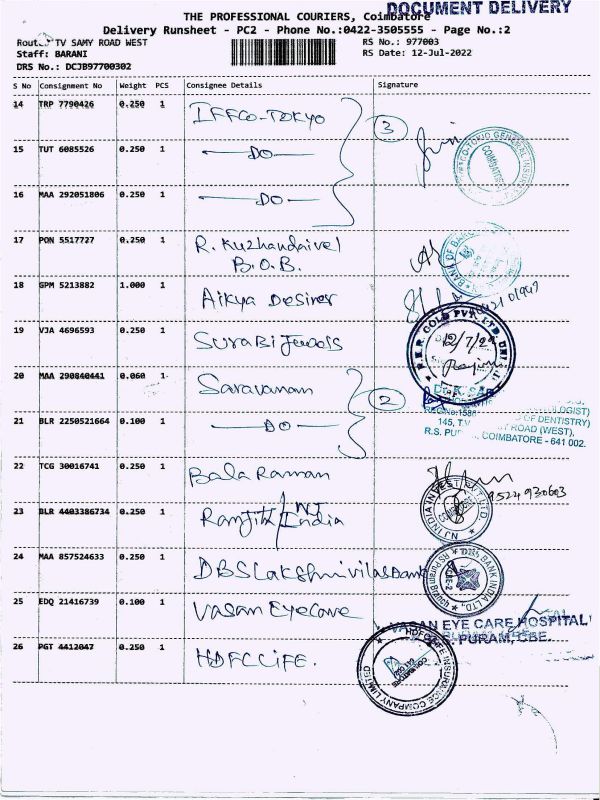 THE PROFESSIONAL COURIERS, Coimbatore
DOCUMENT DELIVERY
Delivery Runsheet - PC2 - Phone No.:0422-3505555 - Page No.:2
TV SAMY ROAD WEST
RS No.: 977003
Staff: BARANI
RS Date: 12-Jul-2022
DRS No.: DCJB97700302
S No Consignment No Weight PCS Consignee Details Signature
14 TRP 7790426 0.250 1 IFFCO-TOKYO
3
15 TUT 6085526 0.250 1 DO
16 MAA 292051806 0.250 1 DO
17 PON 5517727 0.250 1 R. Kuzhandaivel
B.O.B.
18 GPM 5213882 1.000 1 Aikya Desires
19 VJA 4696593 0.250 1 Surabi Jewels
12/7/22
20 MAA 290840441 0.060 1 Saravanan
2
21 BLR 2250521664 0.100 1 DO
145, T.V.
ROAD (WEST),
COIMBATORE - 641 002.
22 TCG 30016741 0.250 1 Bala Raman
9524930603
23 BLR 4403386734 0.250 1 Ranjith / NJ India
24 MAA 857524633 0.250 1 DBS Lakshmi vilas Bank
25 EDQ 21416739 0.100 1 Vasan Eye Care
VASAN EYE CARE HOSPITAL
R.S. PURAM, CBE.
26 PGT 4412047 0.250 1 HDFC LIFE.
HDFC LIFE INSURANCE COMPANY LIMITED